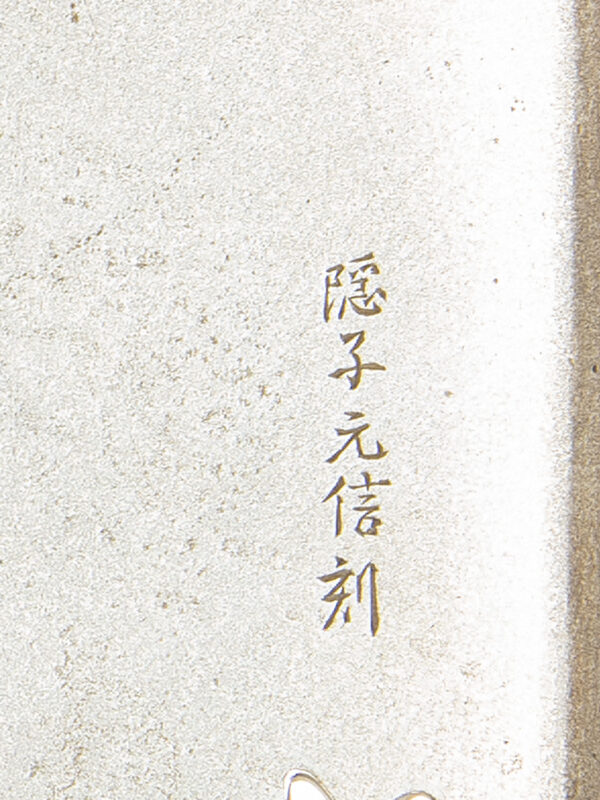 隠子元信刻